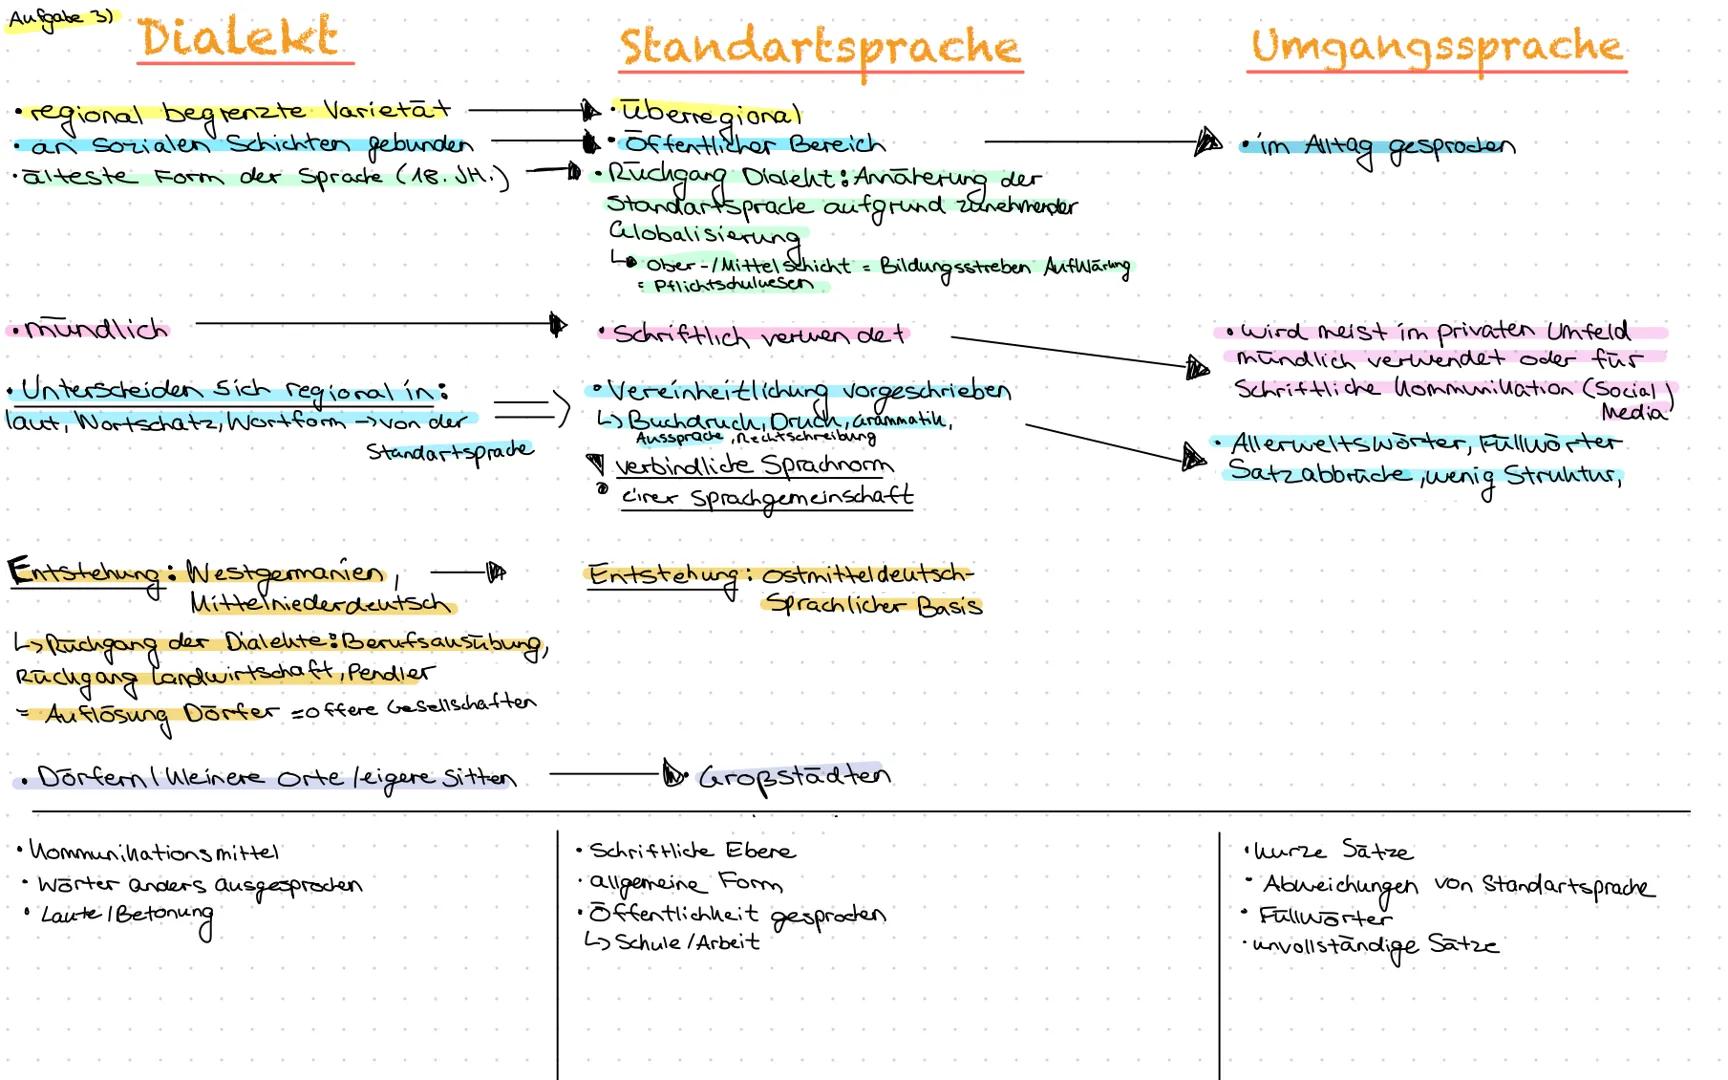 Aufgabe 3)
Dialekt
• regional begrenzte Varietät
• an sozialen Schichten gebunden
• älteste Form der Sprache (18. JH.)
• mündlich
• Unterscheiden sich regional in:
laut, Wortschatz, Wortform → von der
Standartsprache
Entstehung: Westgermanien,
Mittelniederdeutsch
↳ Rückgang der Dialekte: Berufsausübung,
Rückgang Landwirtschaft, Pendler
= Auflösung Dörfer = offere Gesellschaften
• Dörfern / kleinere Orte / eigere Sitten
Standartsprache
• überregional
• Öffentlicher Bereich
• Rückgang Dialekt: Annäterung der
Standartsprache aufgrund zunehmender
Globalisierung
↳ Ober-/Mittelschicht = Bildungsstreben Aufklärung
= Pflichtschulwesen
• Schriftlich verwendet
• Vereinheitlichung vorgeschrieben
↳ Buchdruck, Druck, Grammatik,
Aussprache, Rechtschreibung
verbindliche Sprachnorm
einer Sprachgemeinschaft
Entstehung: ostmitteldeutsch-
Sprachlicher Basis
• Großstädten
Umgangssprache
• im Alltag gesprochen
• wird meist im privaten Umfeld
mündlich verwendet oder für
Schriftliche Kommunikation (Social
Media)
• Allerweltswörter, Füllwörter
Satzabbrüche, wenig Struktur,
• Kommunikationsmittel
• Wörter anders ausgesprochen
• Laute / Betonung
• Schriftliche Ebene
• allgemeine Form
• Öffentlichkeit gesprochen
↳ Schule / Arbeit
• kurze Sätze
• Abweichungen von Standartsprache
• Füllwörter
• unvollständige Sätze